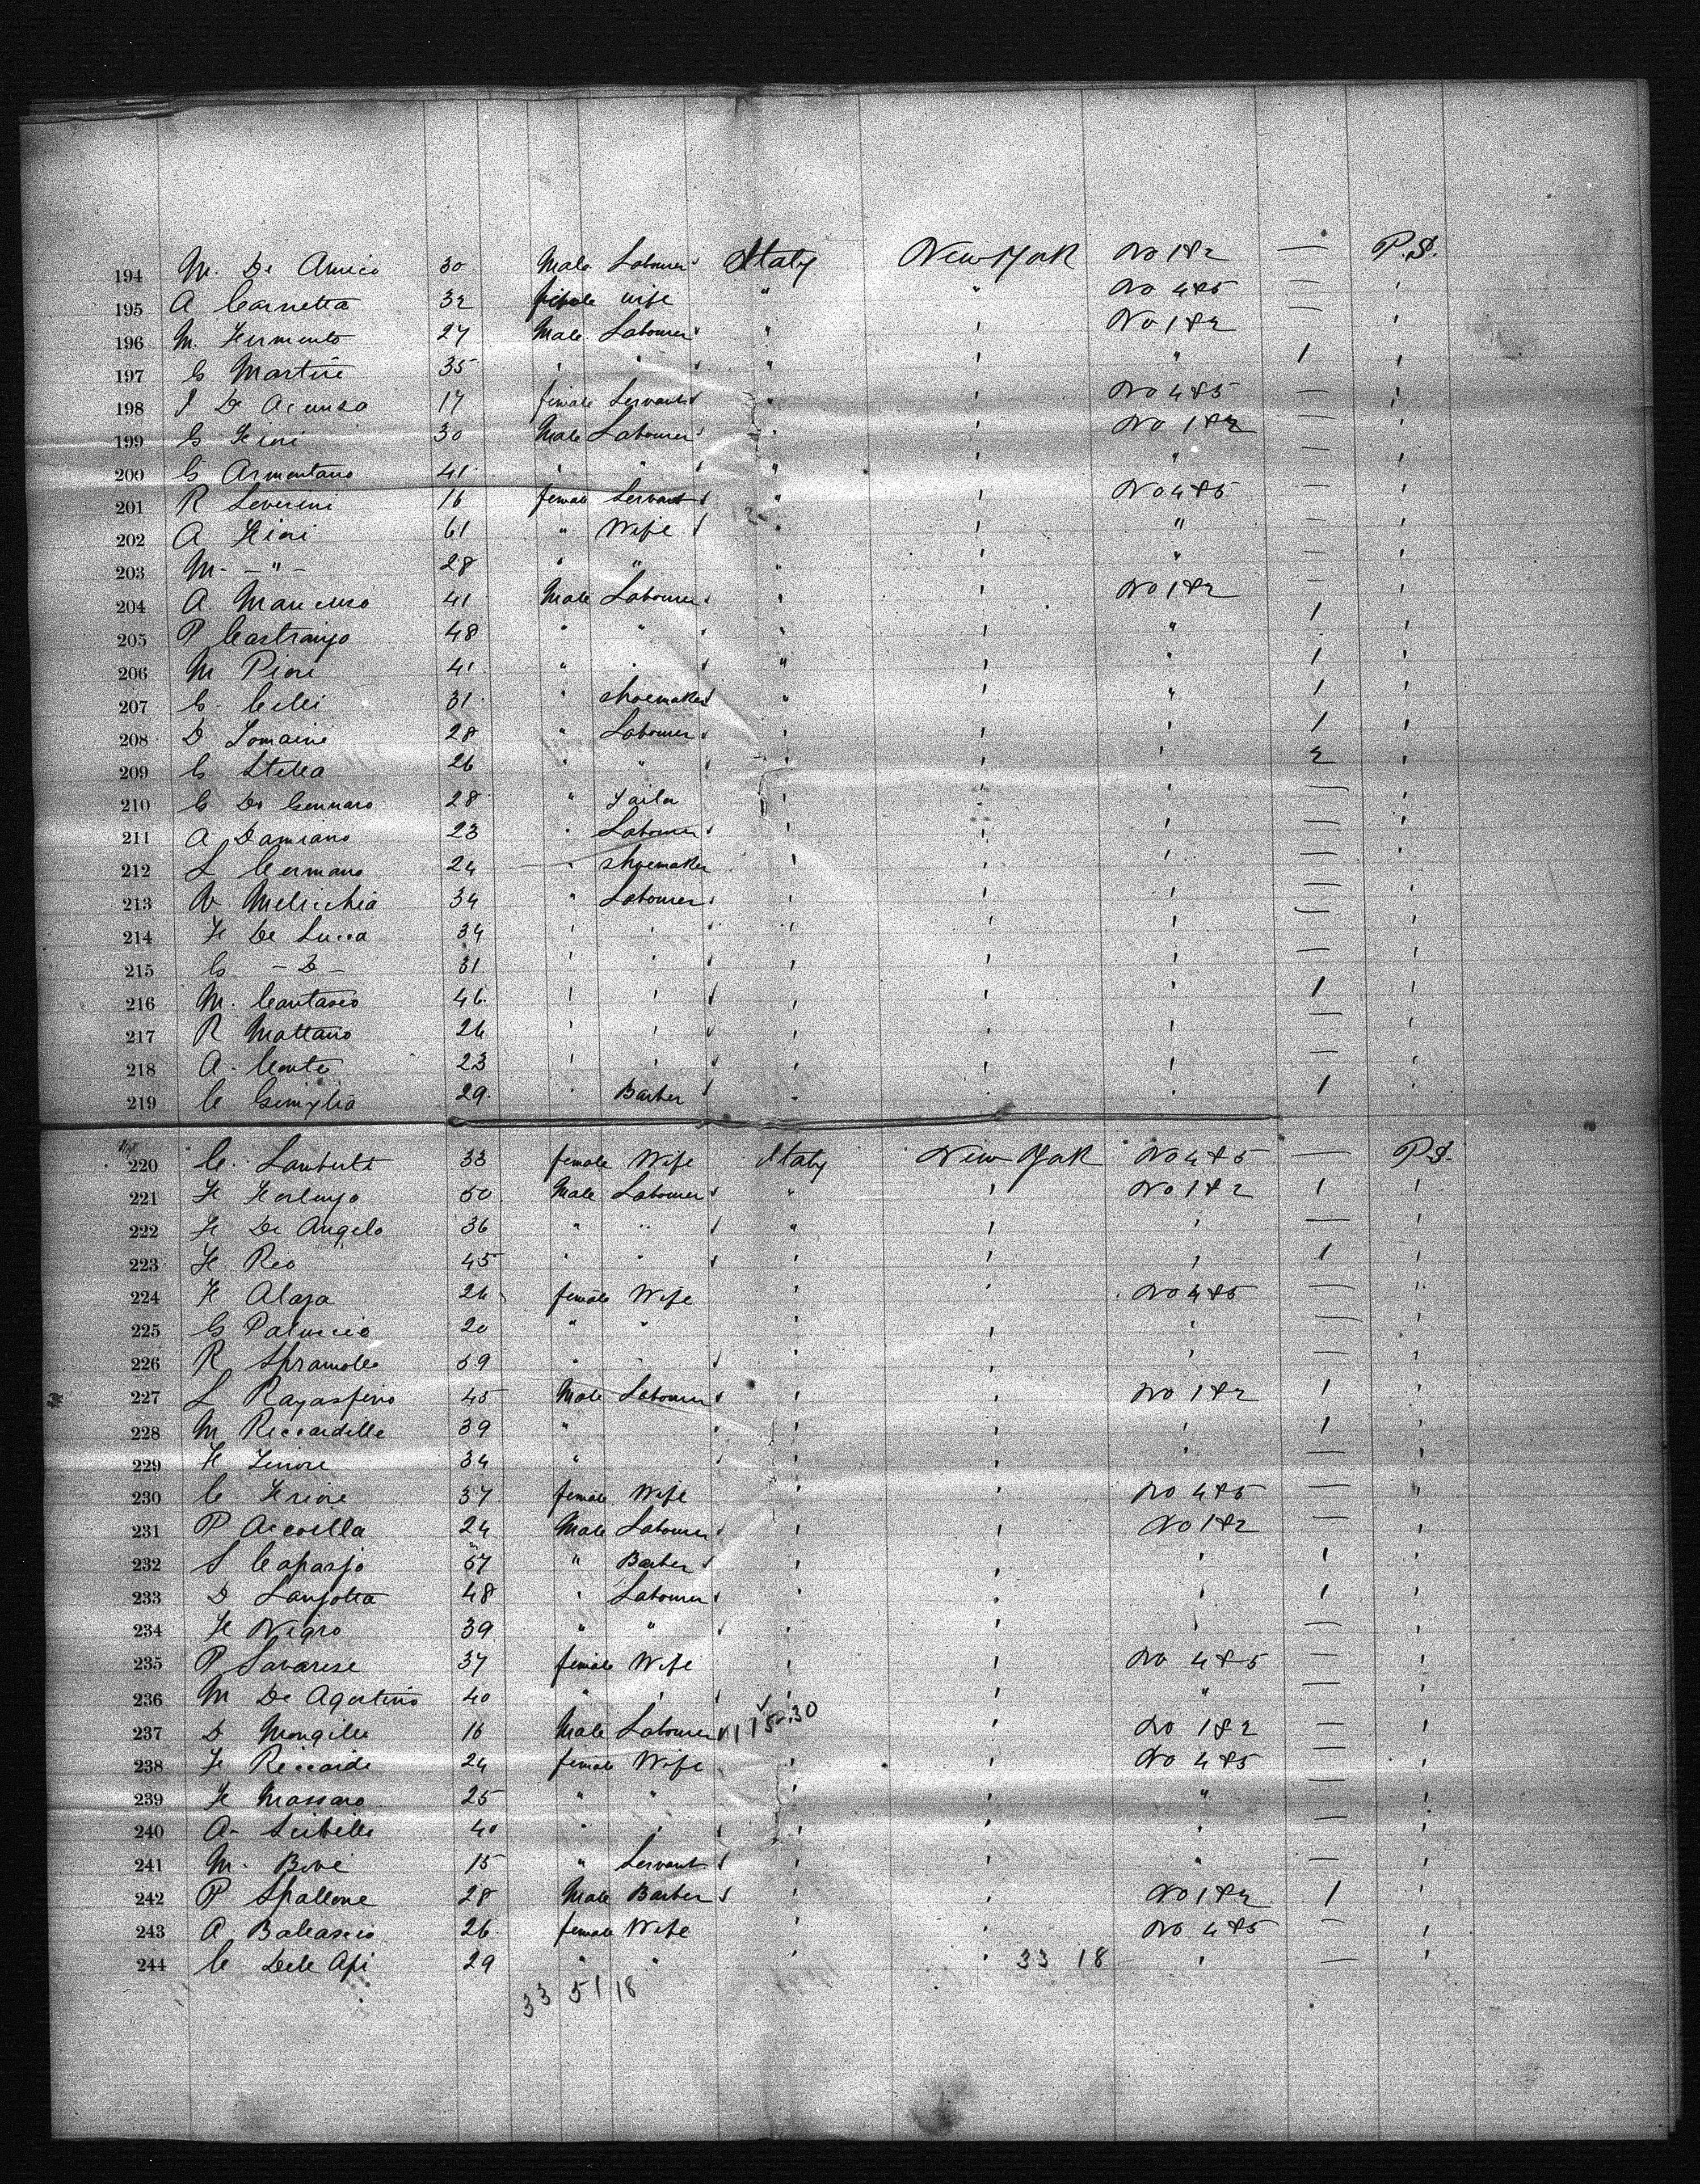 194 M. De Amico 30 Male Labourer Italy New York No 1 & 2 — P.S.
195 A Carnetta 32 female wife " " No 4 & 5 — "
196 M. Fermento 27 Male Labourer " " No 1 & 2 — "
197 G Martire 35 " " " " " 1 "
198 De 17 female Servant " " No 4 & 5 — "
199 G Fiori 30 Male Labourer " " No 1 & 2 — "
200 G Armentano 41 " " " " " — "
201 R Severini 16 female Servant " " No 4 & 5 — "
202 A Fiori 61 " Wife " " " — "
203 M. - " - 28 " " " " " — "
204 A. Mancuso 41 Male Labourer " " No 1 & 2 1 "
205 P 48 " " " " " 1 "
206 M Piori 41 " " " " " 1 "
207 31 " shoemaker " " " 1 "
208 D 28 " Labourer " " " 1 "
209 G Stella 26 " " " " " 2 "
210 G De Gennaro 28 " Tailor " " " — "
211 A Damiano 23 " Labourer " " " — "
212 L Germano 24 " shoemaker " " " — "
213 34 " Labourer " " " — "
214 F De Lucca 34 " " " " " — "
215 G - D - 31 " " " " " — "
216 M. Cantasio 46 " " " " " 1 "
217 R Mattano 26 " " " " " — "
218 A. Conte 23 " " " " " — "
219 C 29 " Barber " " " 1 "
220 C. Lamberti 33 female Wife Italy New York No 4 & 5 — P.S.
221 F 50 Male Labourer " " No 1 & 2 1 "
222 F De Angelo 36 " " " " " — "
223 F Reo 45 " " " " " 1 "
224 F 26 female Wife " " No 4 & 5 — "
225 G Paluccio 20 " " " " " — "
226 R 59 " " " " " — "
227 L 45 Male Labourer " " No 1 & 2 1 "
228 M Riccardelli 39 " " " " 1 "
229 F 34 " " " " — "
230 C 37 female Wife " " No 4 & 5 — "
231 P Accoella 24 Male Labourer " " No 1 & 2 — "
232 S 57 " Barber " " " 1 "
233 D Lanzotta 48 " Labourer " " " 1 "
234 F Negro 39 " " " " " — "
235 P Savarese 37 female Wife " " No 4 & 5 — "
236 M De Agostino 40 " " " " " — "
237 D Mongillo 16 Male Labourer " No 1 & 2 — "
238 F Riccardi 24 female Wife " " No 4 & 5 — "
239 F Massaro 25 " " " " " — "
240 A. Scibelli 40 " " " " " — "
241 M. Bove 15 " Servant " " " — "
242 P Spallone 28 Male Barber " " No 1 & 2 1 "
243 A. 26 female Wife " " No 4 & 5 — "
244 C 29 " " " " 33 18 " — "
33 51 18